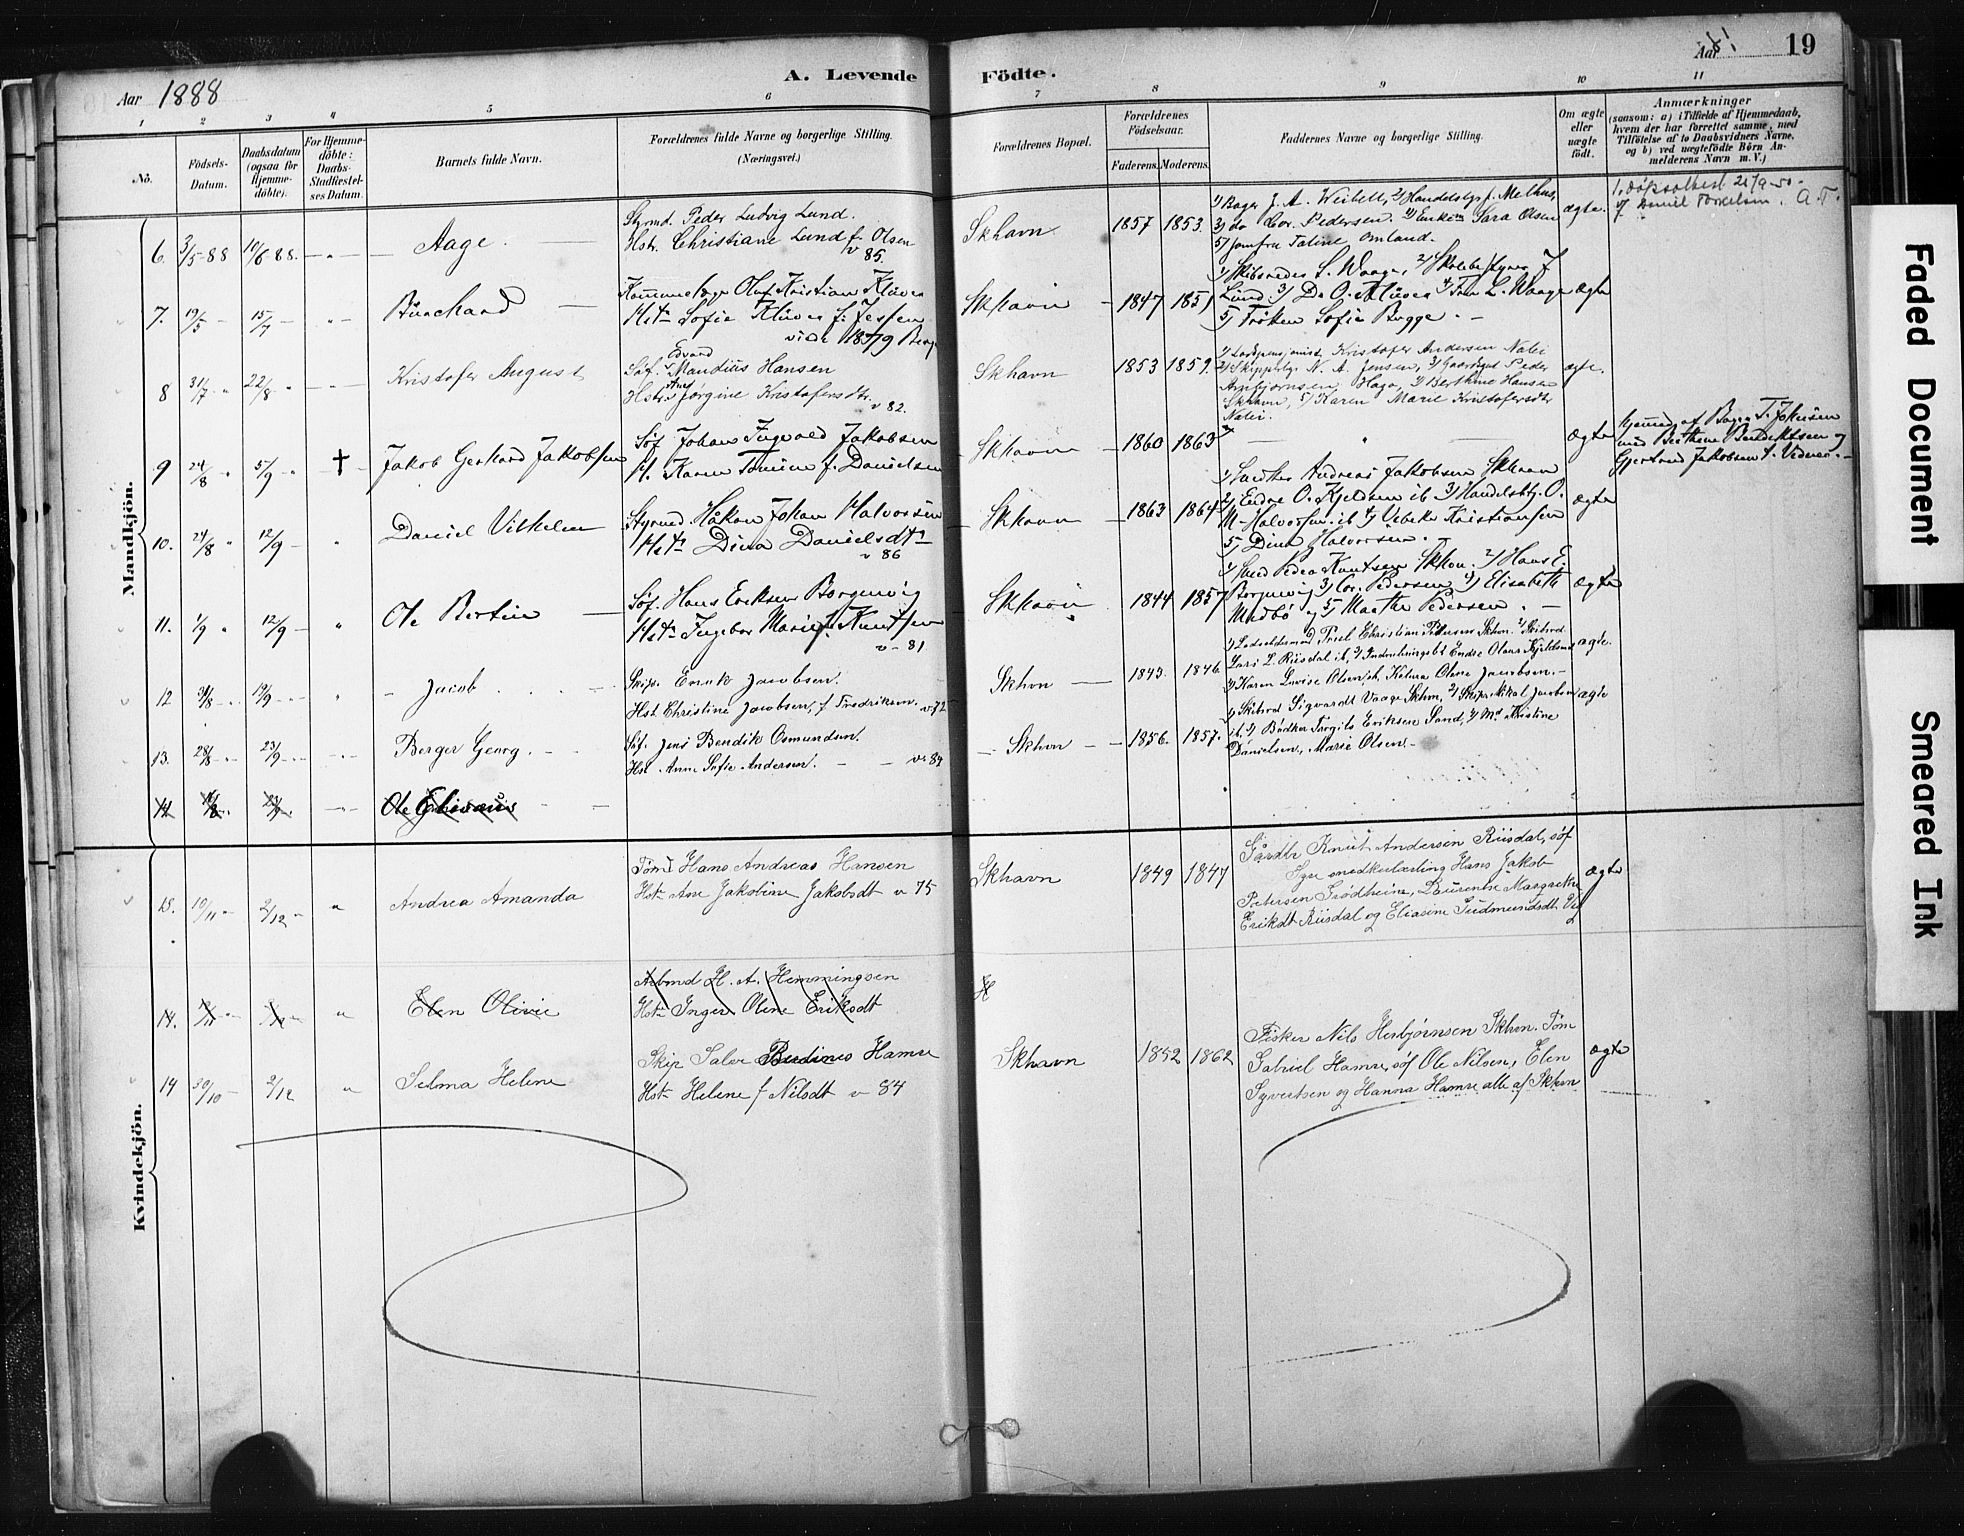 Aar 1888
A. Levende
Födte.
Aar
19
1 2 3 4 5 6 7 8 9 10 11
No.
Födsels-
Datum.
Daabsdatum
(ogsaa for
Hjemme-
döbte).
For Hjemme-
döbte:
Daabs-
Stadfæstel-
ses Datum.
Barnets fulde Navn.
Forældrenes fulde Navne og borgerlige Stilling.
(Næringsvei.)
Forældrenes Bopæl.
Forældrenes
Födselsaar.
Faderens. Moderens.
Faddernes Navne og borgerlige Stilling.
Om ægte
eller
uægte
födt.
Anmærkninger
(saasom: a) i Tilfælde af Hjemmedaab,
hvem der har forrettet samme, med
Tilföielse af to Daabsvidners Navne,
og b) ved uægtefödte Börn An-
melderens Navn m. V.)
Mandkjön.
6. 3/5-88 10/6-88. Aage.
Styrmd. Peder Ludvig Lund.
Hstr. Christiane Lund f. Olsen
v 85.
Skhavn 1857 1853.
1) Bager J. A. Weibell, 2) Handelsbgsf. Melhus,
3) do Cor. Pedersen. 4) Enken Sara Olsen
5) Jomfru Taline Omland.
ægte.
A. T.
7. 19/5 15/7
Olaf Kristian Klüver
Sofie Klüver f. Jessen
viede 1879
Skhavn 1847 1851
1) Skibsreder S. Waage, 2) Skolebestyrer J.
Lund 3) Dr O. Klüver 4) Fru L. Waage
5) Fröken Sofie Bugge. -
ægte
8 31/7 22/8 Kristofer August
Edvard
Söf. Mandius Hansen
Hstr. Jörgine Kristofersdtr.
v 82.
Skhavn 1853 1859.
Kristofer Andersen Nalei
2) Skipperbg. N. A. Jensen, 3) Gaardbgr Peder
Arnbjörnsen Haga, 4) Berthine Hansen
Skhavn, 5) Karen Marie Kristofersdtr
Nalei.
ægte.
9 24/8 5/9 † Jakob Gerhard Jakobsen
Söf. Johan Ingvald Jakobsen
H. Karen Tomine f. Danielsen
Skhavn 1860 1863
ægte
hjemmed. af Bager T. Jakobsen
med Berthine Bendiktsen og
Gjertrud Jakobsen t. Vidner. -
10. 24/8 12/9 Daniel Vilhelm
Styrmd Håkon Johan Halvorsen
Hstr Dina Danielsdtr
v 86
Skhavn 1863 1864
1) Andreas Jakobsen Skhavn
2) Endre O. Kjeldsen ib 3) Handelsbtj. O.
M. Halvorsen ib 4) Vibeke Kristiansen
5) Dina Halvorsen. -
ægte
11. 1/9 12/9 Ole Bertin
Söf. Hans Eriksen Borgenvig
Hstr Ingebor Marie f. Knutsen
v - 81
Skhavn 1844 1857
1) Peder Knutsen Skhvn. 2) Hans E.
Borgenvig 3) Cor. Pedersen 4) Elisabeth
Midbö og 5) Marthe Pedersen. -
ægte
12 31/8 19/9 Jacob
Skip. Enok Jacobsen.
Hst. Christine Jacobsen, f. Fredriksen. v. 72
Skhvn 1843. 1846.
1) Lodsoldermand Troel Christian Pedersen Skhvn. 2) Skibsred.
Lars L. Riisdal ib, 3) Endre Olaus Kjeldsen
4) Karen Lovise Olsen ib, Kelura Olene Jacobsen. -
ægte.
13. 28/8 23/9 Berger Georg.
Söf. Jens Bendik Osmundsen.
Hst. Anne Sofie Andersen. v. 84
Skhvn 1856. 1857.
1) Skibsred Sigvardt Vaage Skhvn, 2) Skipr. Nikol. Jacobsen
ib, 3) Bödker Torgils Eriksen Sand, 4) Md. Kristine
Danielsen, Marie Olsen. -
ægte
14 23/9 Ole Elisæus
Kvindekjön.
15. 10/11 2/12 Andrea Amanda
Tömd Hans Andreas Hansen
Hst. Ane Jakobine Jakobsdt v 75
Skhavn 1849 1847
Gårdbr Knut Andersen Riisdal, söf
Hans Jakob
Petersen Trödheine, Laurentse Margrethe
Eriksdt Riisdal og Eliasine Gudmundsdt Vg
ægte
14. Elen Olivie
Arbmd H. A. Hemmingsen
Hst. Inger Olene Eriksdt
H
14 30/10 2/12 Selma Helene
Skip Salve Berdines Hamre
Hst. Helene f Nilsdt v 84
Skhavn 1852 1862
Fisker Nils Herbjørnsen Skhvn. Töm
Gabriel Hamre, söf Ole Nilsen, Elen
Syvertsen og Hanna Hamre alle af Skhvn
ægte
Faded Document
Smeared Ink